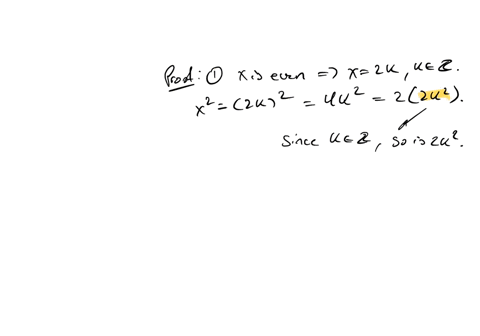 Proof: ① x is even => x = 2k, k ∈ ℤ.
x² = (2k)² = 4k² = 2(2k²).
Since k ∈ ℤ, so is 2k².